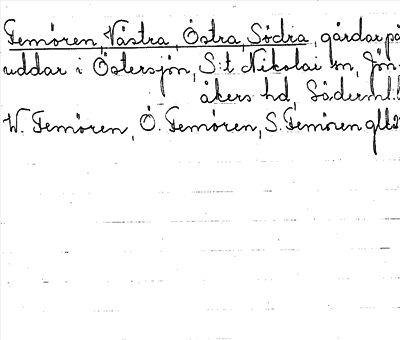 Femören, Västra, Östra, Södra, gårdar på
uddar i Östersjön, S:t Nikolai sn, Jön-
åkers hd, Söderml.
W. Femören, Ö. Femören, S. Femören